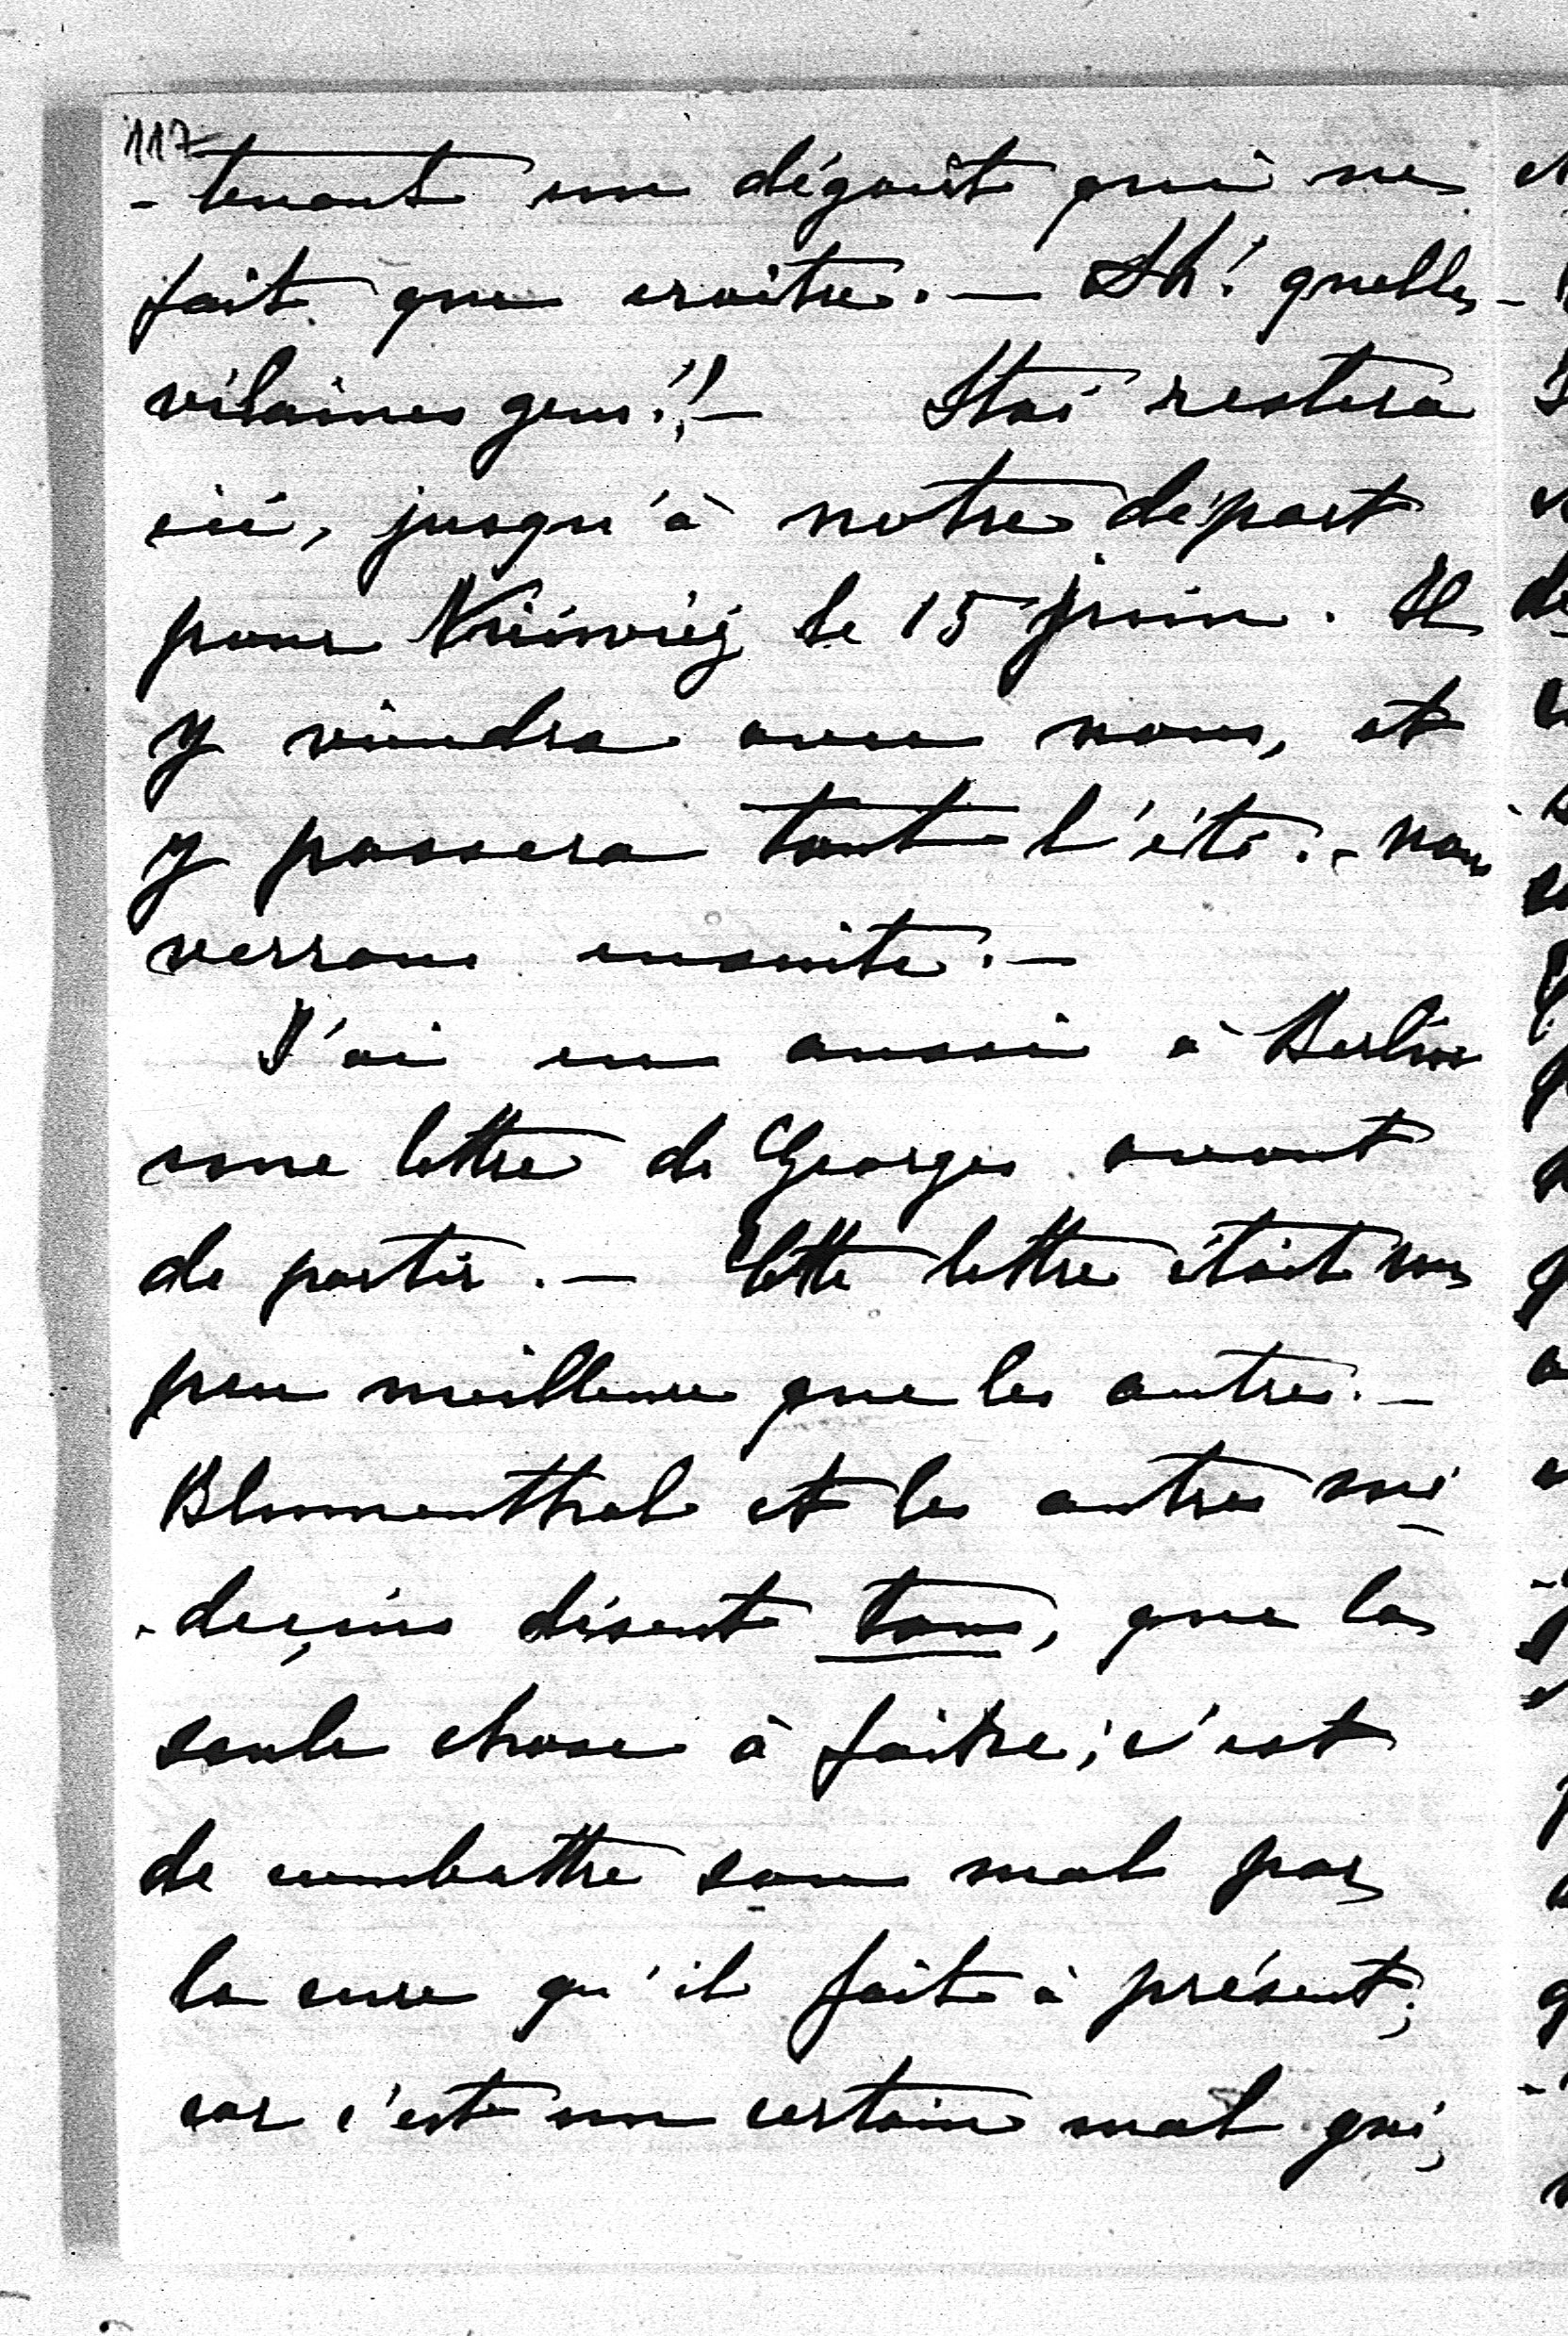 117
-tenant un dégoût qui ne
fait que croître. — Ah! quelles
vilaines gens!! — Staś restera
ici, jusqu'à notre départ
pour Nieśwież le 15 juin. Il
y viendra avec nous, et
y passera tout l'été. - Nous
verrons ensuite. —
J'ai eu aussi à Berlin
une lettre de Georges avant
de partir. — Cette lettre était un
peu meilleure que les autres. —
Blumenthal et les autres mé
-deçins disent tous, que la
seule chose à faire; c'est
de combattre son mal par
la cure qu'il fait à présent;
car c'est un certain mal qui,